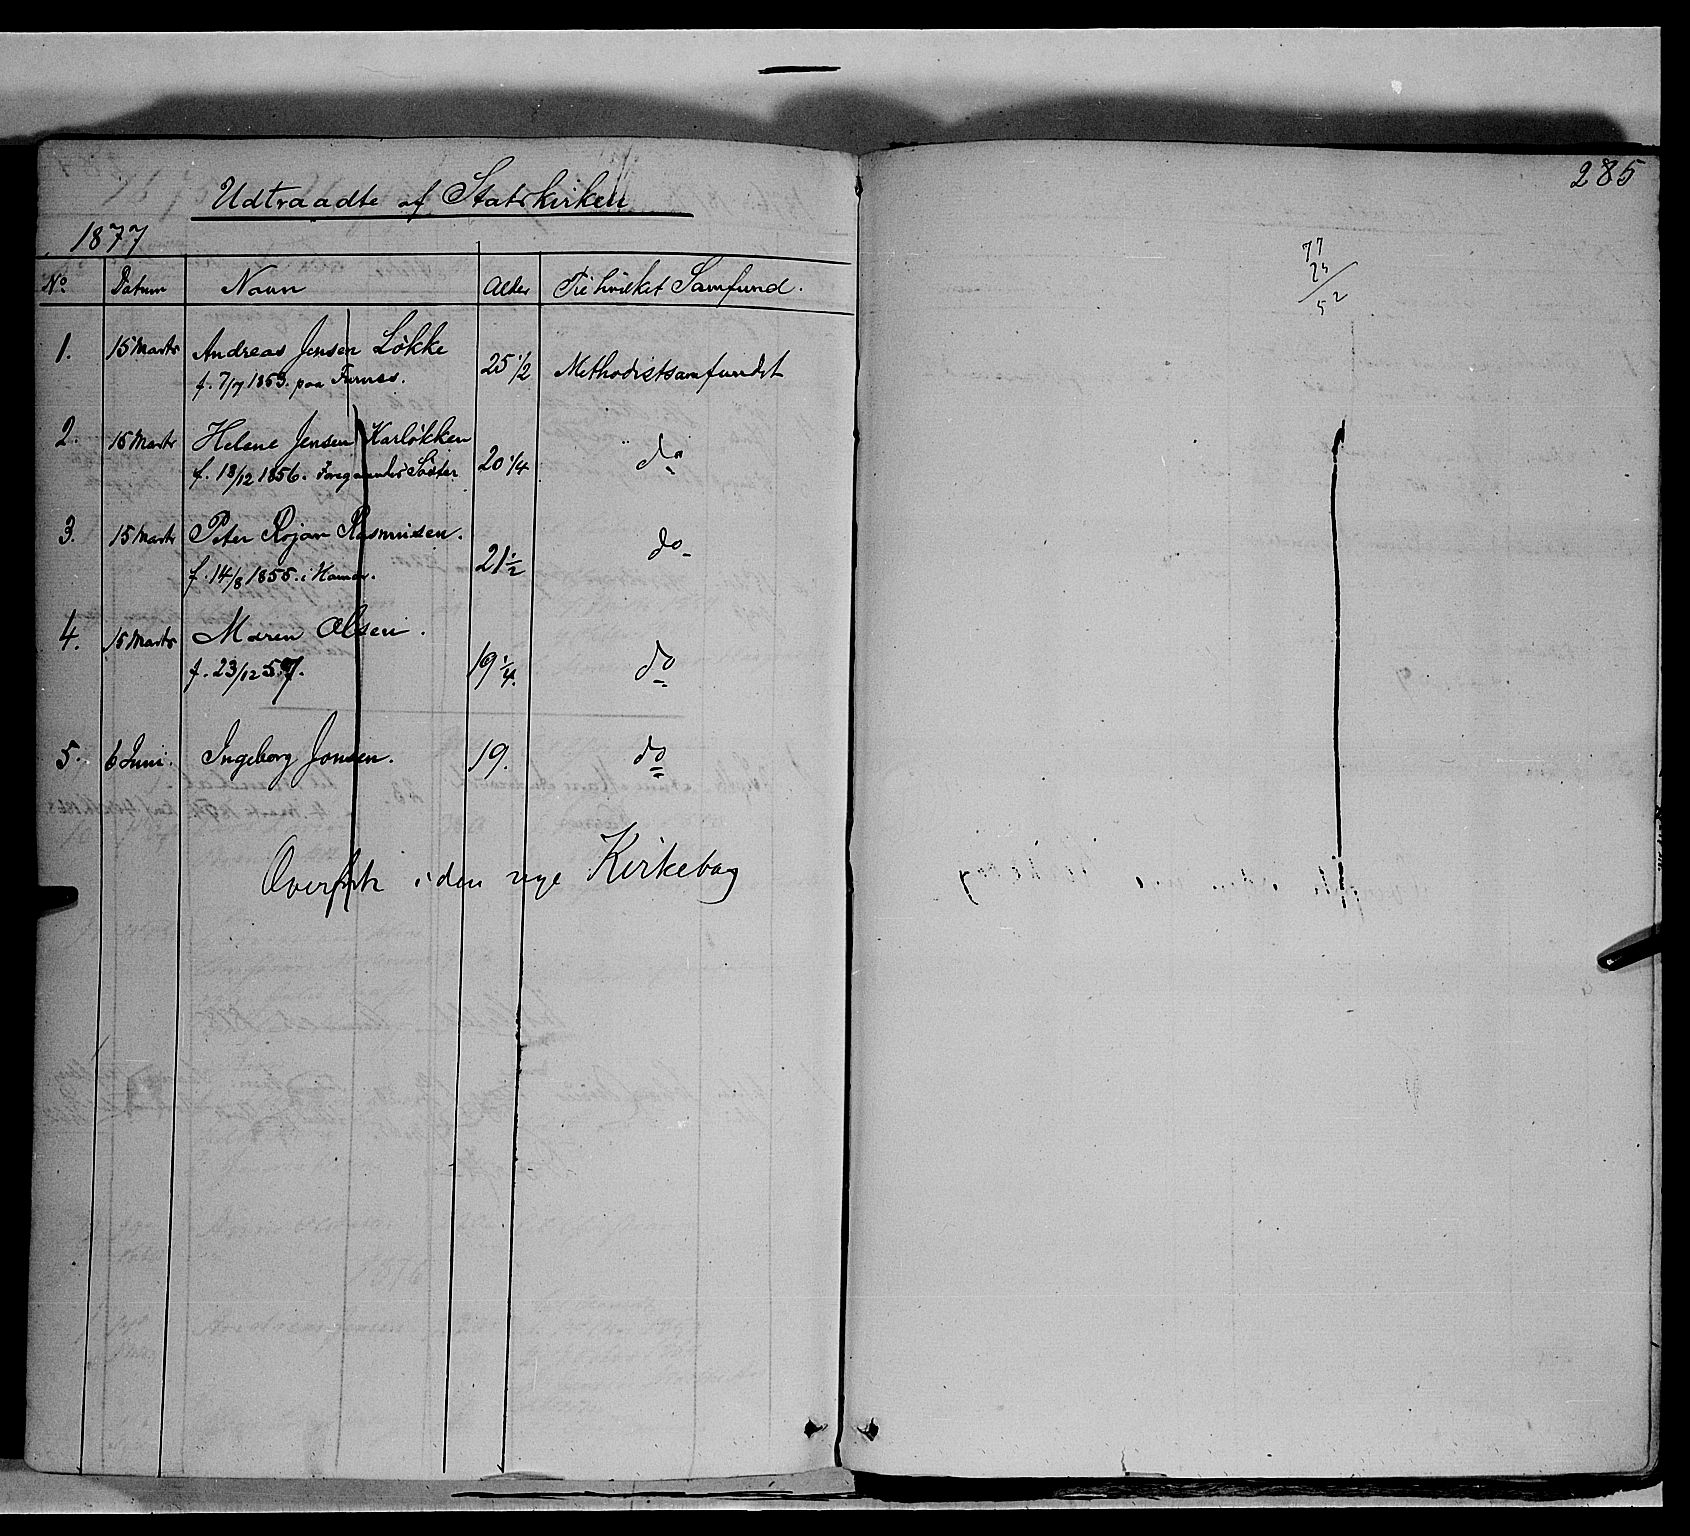 Udtraadte af Statskirken
1877
No Datum Navn Alder Til hvilket Samfund.
1. 15 Marts Andreas Jensen Løkke 25 1/2 Methodistsamfundet
f. 7/7 1853. paa Furnes.
2. 15 Marts Helene Jensen Karløkken 20 1/4 do
f. 18/12 1856. Foregaaendes Søster
3. 15 Marts Peter Rojan Rasmussen. 21 1/2 do
f. 14/8 1855. i Hamar.
4. 15 Marts Maren Olsen. 19 1/4. do
f. 23/12 57.
5. 6 Juni. Ingeborg Jonsen. 19. do
Overført i den nye Kirkebog
285
77
25
52